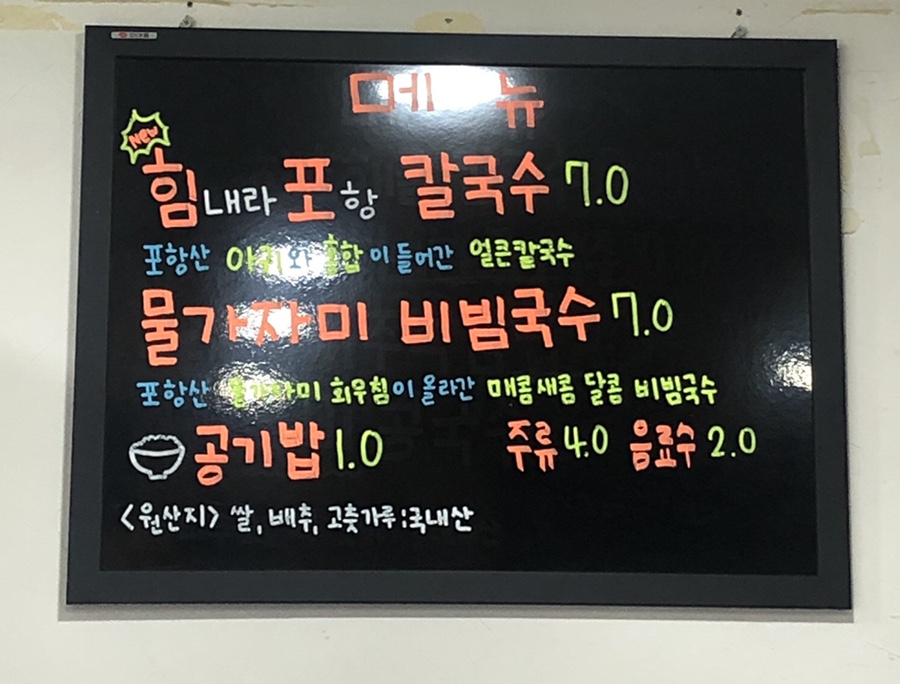 메뉴
New
힘내라 포항 칼국수 7.0
포항산 아귀와 홍합이 들어간 얼큰칼국수
물가자미 비빔국수 7.0
포항산 물가자미 회무침이 올라간 매콤새콤 달콤 비빔국수
공기밥 1.0 주류 4.0 음료수 2.0
<원산지> 쌀, 배추, 고춧가루:국내산